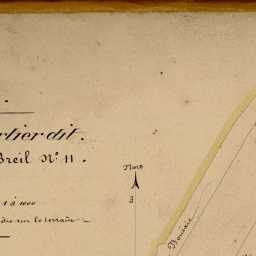 rtier dit.
Breil Nº 11.
Nord
1 à 1000
sur le terrain